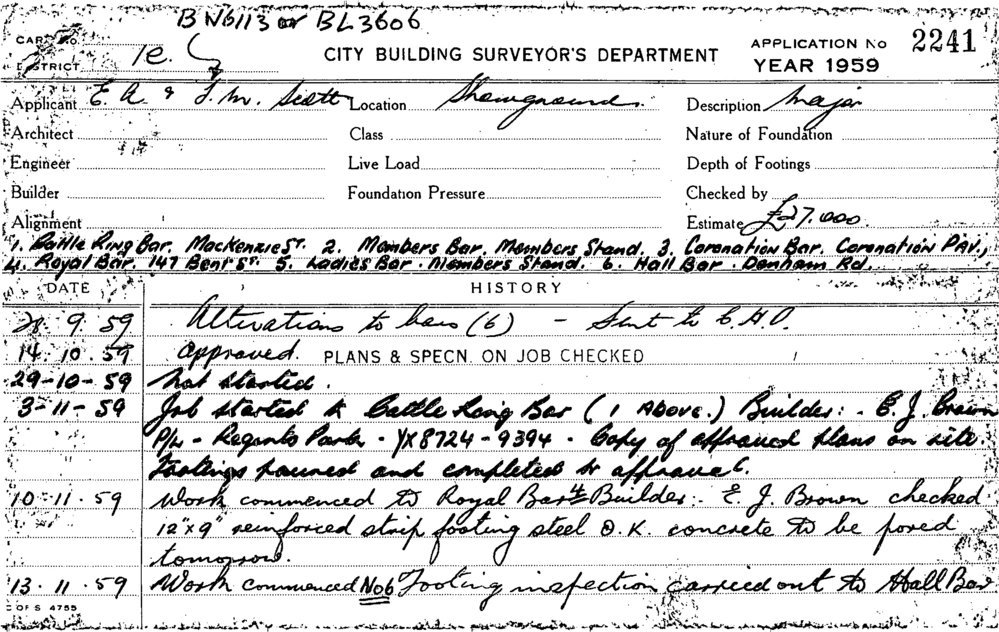 BN6113 or BL3606
CARD No
DISTRICT 1e.
CITY BUILDING SURVEYOR'S DEPARTMENT
APPLICATION No 2241
YEAR 1959
Applicant E. A. & M. Scott Location Showground. Description Major
Architect Class Nature of Foundation
Engineer Live Load Depth of Footings
Builder Foundation Pressure Checked by
Alignment Estimate £27.000
1. Cattle Ring Bar. Mackenzie St. 2. Members Bar. Members Stand. 3. Coronation Bar. Coronation Pav.,
4. Royal Bar. 147 Bent St. 5. Ladies Bar. Members Stand. 6. Hall Bar. Denham Rd.
DATE HISTORY
9. 59 Alterations to bars (6) - Sent to C.H.O.
14. 10. 59 Approved. PLANS & SPECN. ON JOB CHECKED
29-10-59 Not started.
3-11-59 Job started to Cattle Ring Bar (1 ABOVE.) Builder:- E. J. Brown
P/L - Regents Park - YX8724-9394. Copy of approved plans on site
Footings poured and completed to approval.
10-11-59 Work commenced to Royal Bar 4 Builder:- E. J. Brown checked
12"x9" reinforced strip footing steel O.K. concrete to be pored
tomorrow.
13. 11. 59 Work commenced No6 Footing inspection carried out to Hall Bar
OF S 4755